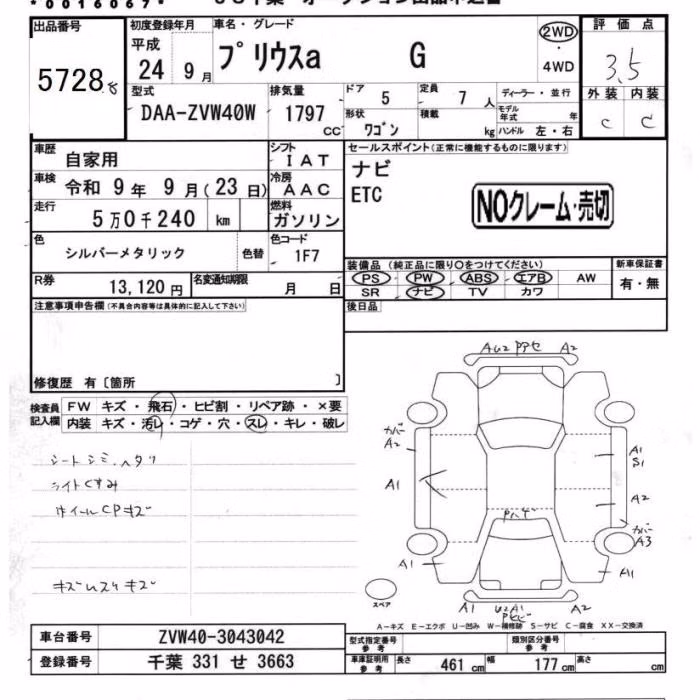 *0016069*
出品番号 5728
初度登録年月 平成 24 9月
車名・グレード プリウスα G
2WD・4WD
評価点 3.5
外装 C 内装 C
型式 DAA-ZVW40W
排気量 1797 CC
ドア 5
形状 ワゴン
定員 7 人
積載 kg
ディーラー・並行
モデル年式 年
ハンドル 左・右
車歴 自家用
シフト IAT
車検 令和 9年 9月(23日)
冷房 AAC
走行 5万0千240 km
燃料 ガソリン
色 シルバーメタリック 色替
色コード 1F7
R券 13,120円
名変通知期限 月 日
セールスポイント(正常に機能するものに限ります)
ナビ
ETC
NOクレーム・売切
装備品(純正品に限り○をつけてください)
PS PW ABS エアB AW
SR ナビ TV カワ
新車保証書 有・無
後日品
注意事項申告欄(不具合内容等は具体的に記入して下さい)
修復歴 有〔箇所 〕
検査員記入欄
FW キズ・飛石・ヒビ割・リペア跡・×要
内装 キズ・汚レ・コゲ・穴・スレ・キレ・破レ
シートシミ、ヘタリ
ライトくすみ
ホイールCPキズ
キズレスリキズ
AU2 A2
カバー A2
A1
A1
A1 S1
A2
カバー A3
A1
A1 U2 A1 A2
スペア
A-キズ E-エクボ U-凹み W-補修跡 S-サビ C-腐食 XX-交換済
車台番号 ZVW40-3043042
登録番号 千葉 331 せ 3663
型式指定番号 参考
類別区分番号 参考
車庫証明用 参考 長さ 461 cm 幅 177 cm 高さ cm